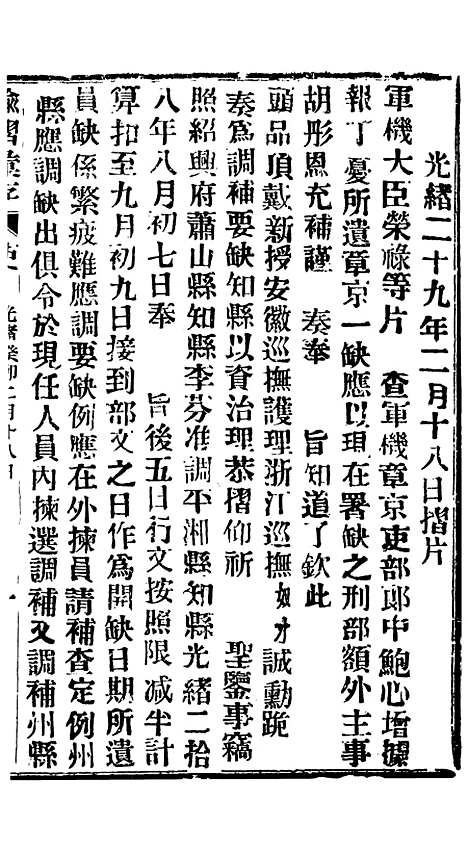 光緒二十九年二月十八日摺片
軍機大臣榮祿等片　查軍機章京吏部郎中鮑心增據
報丁憂所遺章京一缺應以現在署缺之刑部額外主事
胡彤恩充補謹　奏奉　旨知道了欽此
頭品頂戴新授安徽巡撫護理浙江巡撫奴才誠勳跪
奏爲調補要缺知縣以資治理恭摺仰祈　聖鑒事竊
照紹興府蕭山縣知縣李芬准調平湖縣知縣光緒二拾
八年八月初七日奉　旨後五日行文按照限減半計
算扣至九月初九日接到部文之日作爲開缺日期所遺
員缺係繁疲難應調要缺例應在外揀員請補查定例州
縣應調缺出俱令於現任人員內揀選調補又調補州縣
光緒癸卯二月十八日